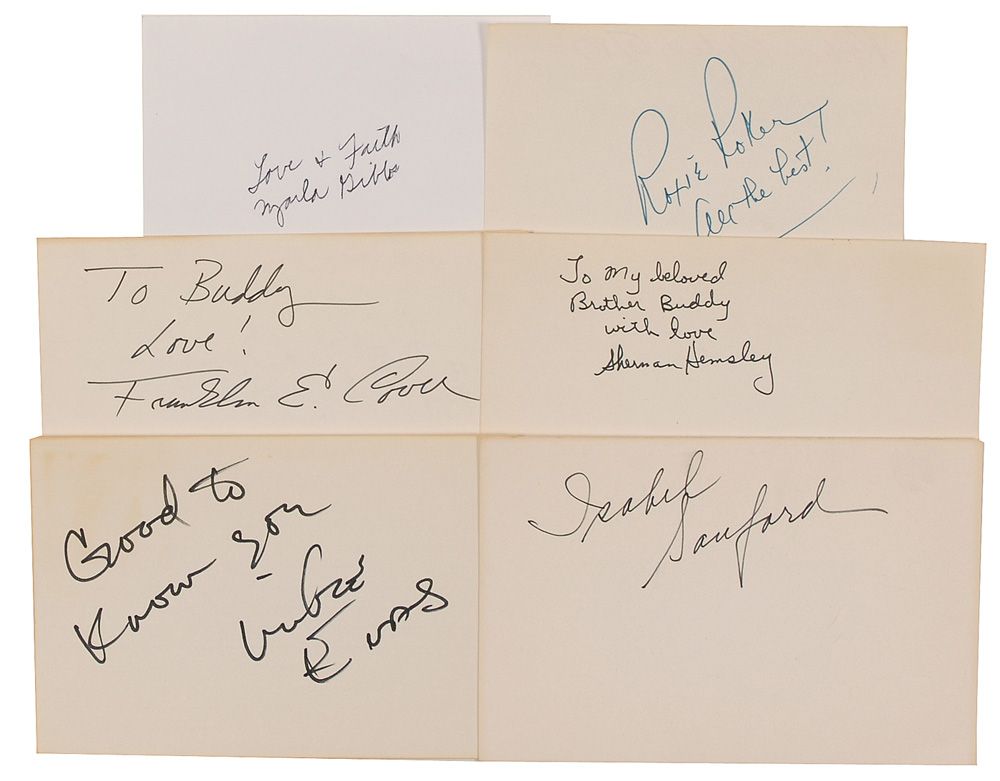 Love + Faith
Marla Gibbs
Roxie Roker
all the best!
To Buddy
Love!
Franklin E. Cover
To My beloved
Brother Buddy
with love
Sherman Hemsley
Good to
Know you
Mike
Evans
Isabel
Sanford